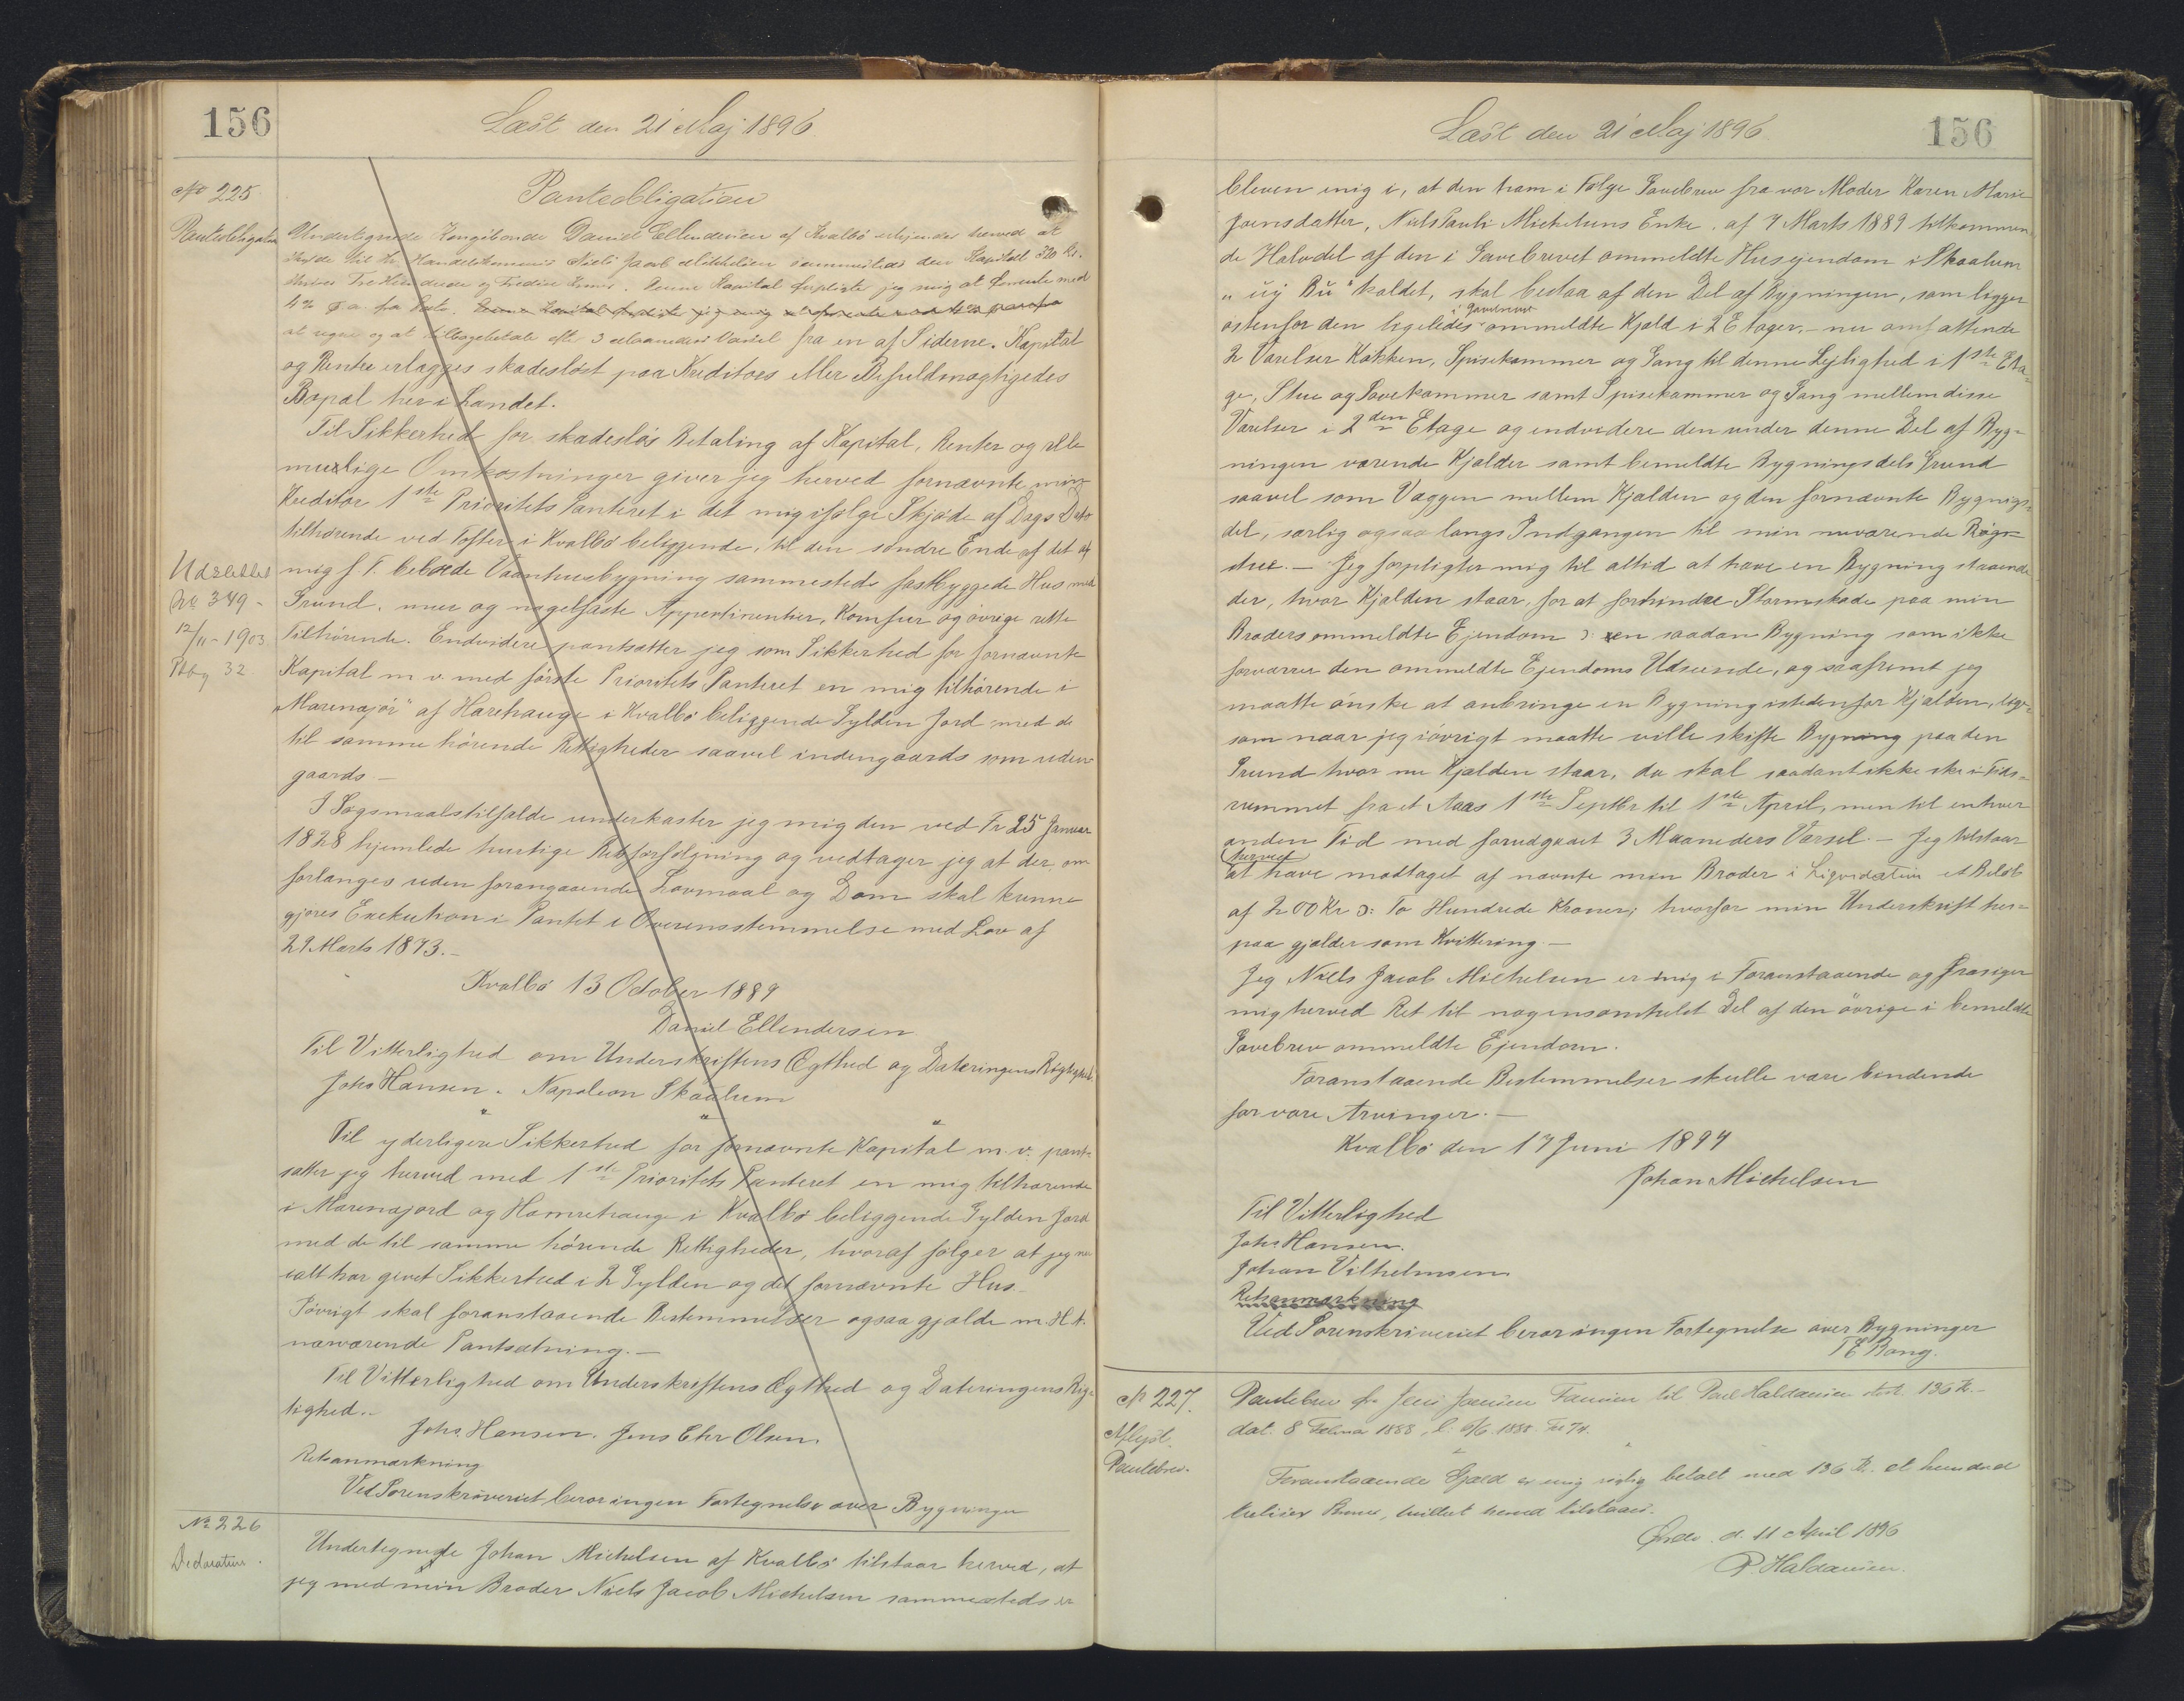 156
Læst den 21 Maj 1896.
No 225.
Pantobligation
Panteobligation
Undertegnede Kongsbonde Daniel Ellendersen af Kvalbø erkjender herved at
skylde til Hr. Handelsmand Niels Jacob Michelsen sammesteds den Kapital 350 Kr.
skriver Tre Hundrede og Fredive Kroner. Denne Kapital forpligter jeg mig at forrente med
4% p a. fra Dato. Denne Kapital forpligter jeg mig at forrente med 4% pro anno
at regne og at tilbagebetale efter 3 Maaneders Varsel fra en af Siderne. Kapital
og Renter erlægges skadesløst paa Kreditors eller Befuldmægtigedes
Bopæl her i Landet.
Til Sikkerhed for skadesløs Betaling af Kapital, Renter og alle
muelige Omkostninger giver jeg herved fornævnte min
Kreditor 1ste Prioritets Panteret i det mig ifølge Skjøde af Dags Dato
tilhørende ved Toften i Kvalbø beliggende, til den søndre Ende af det af
mig f. T. beboede Vaanhuusbygning sammesteds fastbyggede Hus med
Grund, mur og nagelfaste Appertinentier, Komfur og øvrige rette
Tilhørende. Endvidere pantsætter jeg som Sikkerhed for fornævnte
Kapital m v. med første Prioritets Panteret en mig tilhørende i
"Marenajør" af Harehauge i Kvalbø beliggende Gylden Jord med de
til samme hørende Rettigheder saavel indengaards som uden-
gaards.—
Udslettet
No 349-
12/11-1903
Pbg 32.
I Søgsmaalstilfælde underkaster jeg mig den ved Fr 25 Januar
1828 hjemlede hurtige Retsforfølgning og vedtager jeg at der, om
forlanges uden forangaaende Lovmaal og Dom skal kunne
gjøres Exekution i Pantet i Overensstemmelse med Lov af
29 Marts 1873.—
Kvalbø 13 October 1889
Daniel Ellendersen
Til Vitterlighed om Underskriftens Ægthed og Dateringens Rigtighed
Johs Hansen. Napoleon Skaalum
" " "
Til yderligere Sikkerhed for fornævnte Kapital m. v. pant-
sætter jeg herved med 1ste Prioritets Panteret en mig tilhørende
i Marenajord og Hamrehauge i Kvalbø beliggende Gylden Jord
med de til samme hørende Rettigheder, hvoraf følger at jeg nu
ialt har givet Sikkerhed i 2 Gylden og det fornævnte Hus.—
Iøvrigt skal foranstaaende Bestemmelser ogsaa gjælde m. H. t.
nærværende Pantsætning.—
Til Vitterlighed om Underskriftens Ægthed og Dateringens Rig-
tighed.—
Johs. Hansen. Jens Chr Olsen.
Retsanmærkning
Ved Sorenskriveriet beror ingen Fortegnelse over Bygninger
No 226
Declaration.
Undertegnede Johan Michelsen af Kvalbø tilstaar herved, at
jeg med min Broder Niels Jacob Michelsen sammesteds er
156
Læst den 21 Maj 1896.
bleven enig i, at den ham i Følge Gavebrev fra vor Moder Karen Marie
Joensdatter, Niels Pauli Michelsens Enke, af 7 Marts 1889 tilkommen-
de Halvdel af den i Gavebrevet ommeldte Husejendom i Skaalum
"uj Bu" kaldet, skal bestaa af den Del af Bygningen, som ligger
østenfor den ligeledes i Gavebrevet ommeldte Kjæld i 2 Etager,— nu omfattende
2 Værelser Køkken, Spisekammer og Gang til denne Lejlighed i 1ste Eta-
ge, Stue og Sovekammer samt Spisekammer og Gang mellem disse
Værelser i 2den Etage og endvidere den under denne Del af Byg-
ningen værende Kjælder samt bemeldte Bygningsdels Grund
saavel som Væggen mellem Kjælden og den fornævnte Bygnigs-
del, særlig ogsaa langs Indgangen til min nuværende Røg-
stue.— Jeg forpligter mig til altid at have en Bygning staaende
der, hvor Kjælden staar, for at forhindre Stormskade paa min
Broders ommeldte Ejendom ɔ: en saadan Bygning som ikke
forværrer den ommeldte Ejendoms Udseende, og saafremt jeg
maatte ønske at anbringe en Bygning istedenfor Kjælden, lige-
som naar jeg iøvrigt maatte ville skifte Bygning paa den
Grund hvor nu Kjælden staar, da skal saadant ikke ske i Tids-
rummet fra et Aars 1ste Septbr til 1ste April, men til enhver
anden Tid med forudgaaet 3 Maaneders Varsel.— Jeg tilstaar
herved
at have modtaget af nævnte min Broder i Ligvidation et Beløb
af 200 Kr ɔ: To Hundrede Kroner, hvorfor min Underskrift her-
paa gjælder som Kvittering.—
Jeg Niels Jacob Michelsen er enig i Foranstaaende og frasiger
mig herved Ret til nogensomhelst Del af den øvrige i bemeldte
Gavebrev ommeldte Ejendom.
Foranstaaende Bestemmelser skulle være bindende
for vore Arvinger.—
Kvalbø den 17 Juni 1894
Johan Michelsen
Til Vitterlighed
Johs Hansen.
Johan Vilhelmsen
Retsanmærkning
Ved Sorenskriveriet beror ingen Fortegnelse over Bygninger
T E Bang.
No 227.
Aflyst.
Pantebrev.
Pantebrev fra Jens Joensen Famien til Poul Haldansen stort 136 Kr.—
dat. 8 Februar 1883, l. 6/6 1888. Fr 74.
" "
Foranstaaende Gjæld er mig rigtig betalt med 136 Kr. et hundred
Kroner, hvilket herved tilstaaes.
d. 11 April 1896
P. Haldansen.